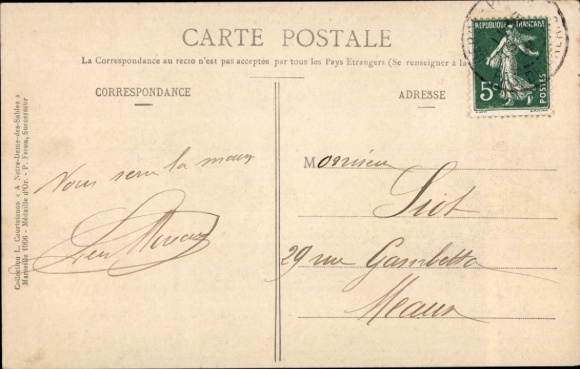 CARTE POSTALE
La Correspondance au recto n'est pas acceptée par tous les Pays Etrangers (Se renseigner à la
CORRESPONDANCE
ADRESSE
REPUBLIQUE FRANÇAISE
5c
POSTES
Collection L. Courteisson « A Notre-Dame-des-Sables »
Marseille 1906 - Médaille d'Or. - P. Feron, Successeur
Vous serre la main
Monsieur
29 rue Gambetta
Meaux